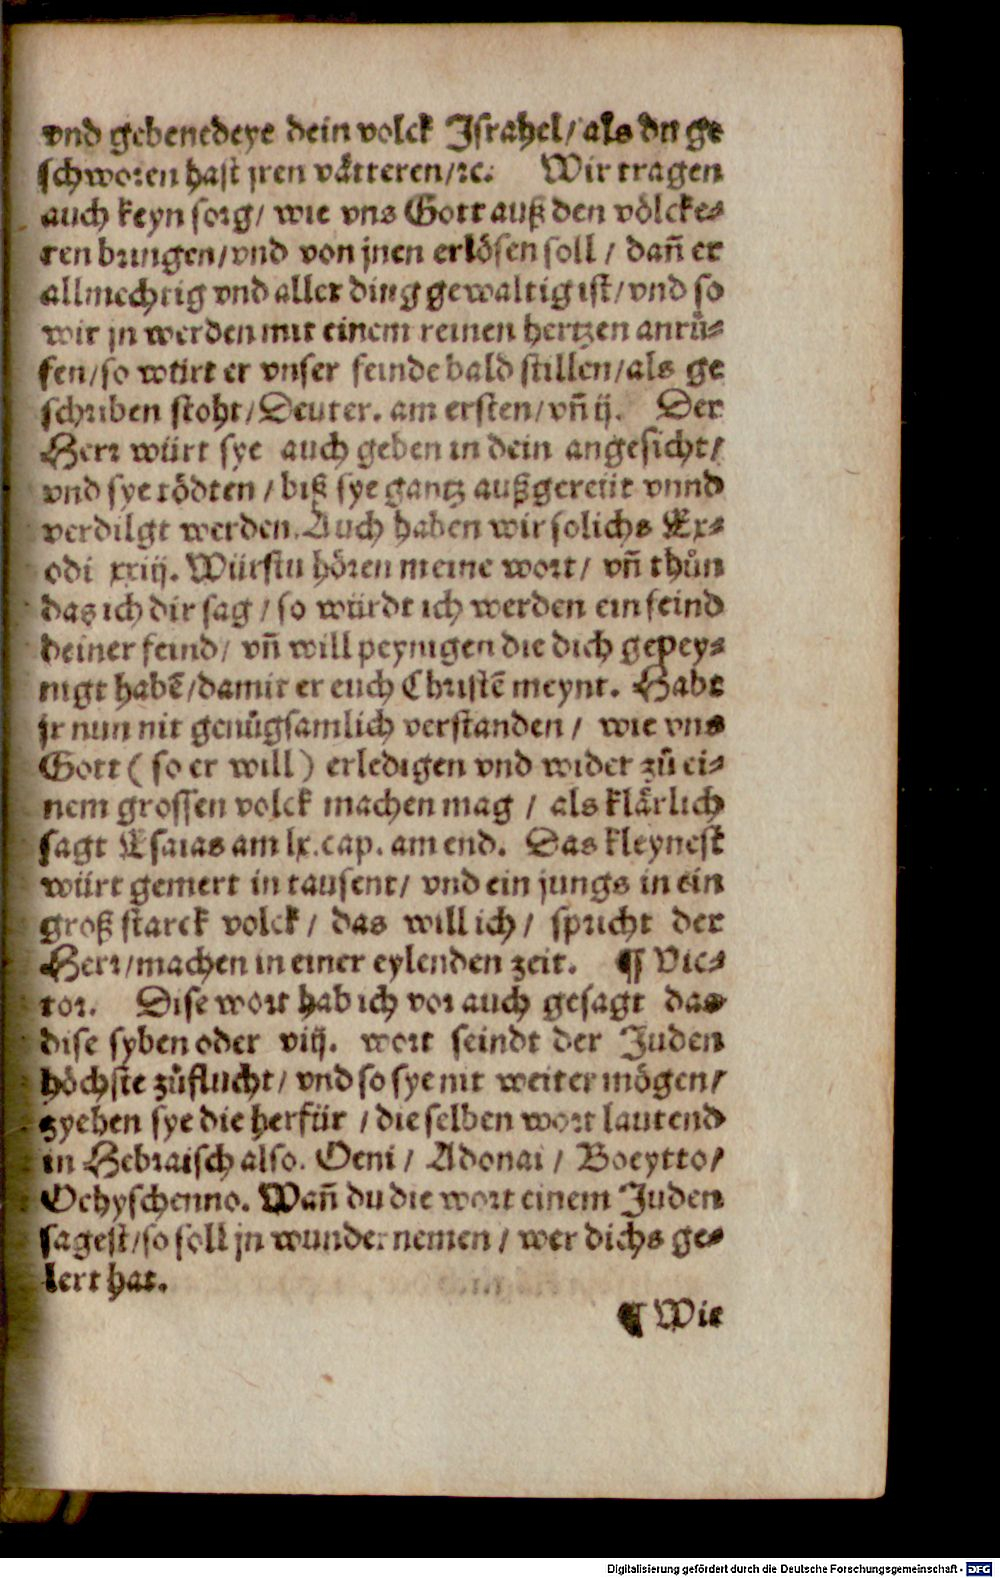 vnd gebenedeye dein volck Israhel/ als du ge
schworen hast jren våtteren/ꝛc. Wir tragen
auch keyn sorg/ wie vns Gott auß den vôlcke⸗
ren bringen/vnd von jnen erlôsen soll / dañ er
allmechtig vnd aller ding gewaltig ist/ vnd so
wir jn werden mit einem reinen hertzen anrů⸗
fen/so würt er vnser feinde bald stillen/als ge
schriben stoht/Deuter. am ersten/vñ ij. Der
Herr würt sye auch geben in dein angesicht/
vnd sye tôdten / biß sye gantz außgereüt vnnd
verdilgt werden. Auch haben wir solichs Ex⸗
odi xxiij. Würstu hôren meine wort/ vñ thůn
das ich dir sag / so würdt ich werden ein feind
deiner feind/ vñ will peynigen die dich gepey⸗
nigt habē/damit er euch Christē meynt. Habt
jr nun nit genůgsamlich verstanden / wie vns
Gott ( so er will ) erledigen vnd wider zů ei⸗
nem grossen volck machen mag / als klårlich
sagt Esaias am lx.cap. am end. Das kleynest
würt gemert in tausent/ vnd ein jungs in ein
groß starck volck / das will ich / spricht der
Herr/machen in einer eylenden zeit. ¶ Vic⸗
tor. Dise wort hab ich vor auch gesagt das
dise syben oder viij. wort seindt der Juden
hôchste zůflucht/ vnd so sye nit weiter môgen/
zyehen sye die herfür / die selben wort lautend
in Hebraisch also. Oeni / Adonai / Boeytto/
Ochyschenno. Wañ du die wort einem Juden
sagest/so soll jn wunder nemen / wer dichs ge⸗
lert hat.
¶ Wie
Digitalisierung gefördert durch die Deutsche Forschungsgemeinschaft - DFG